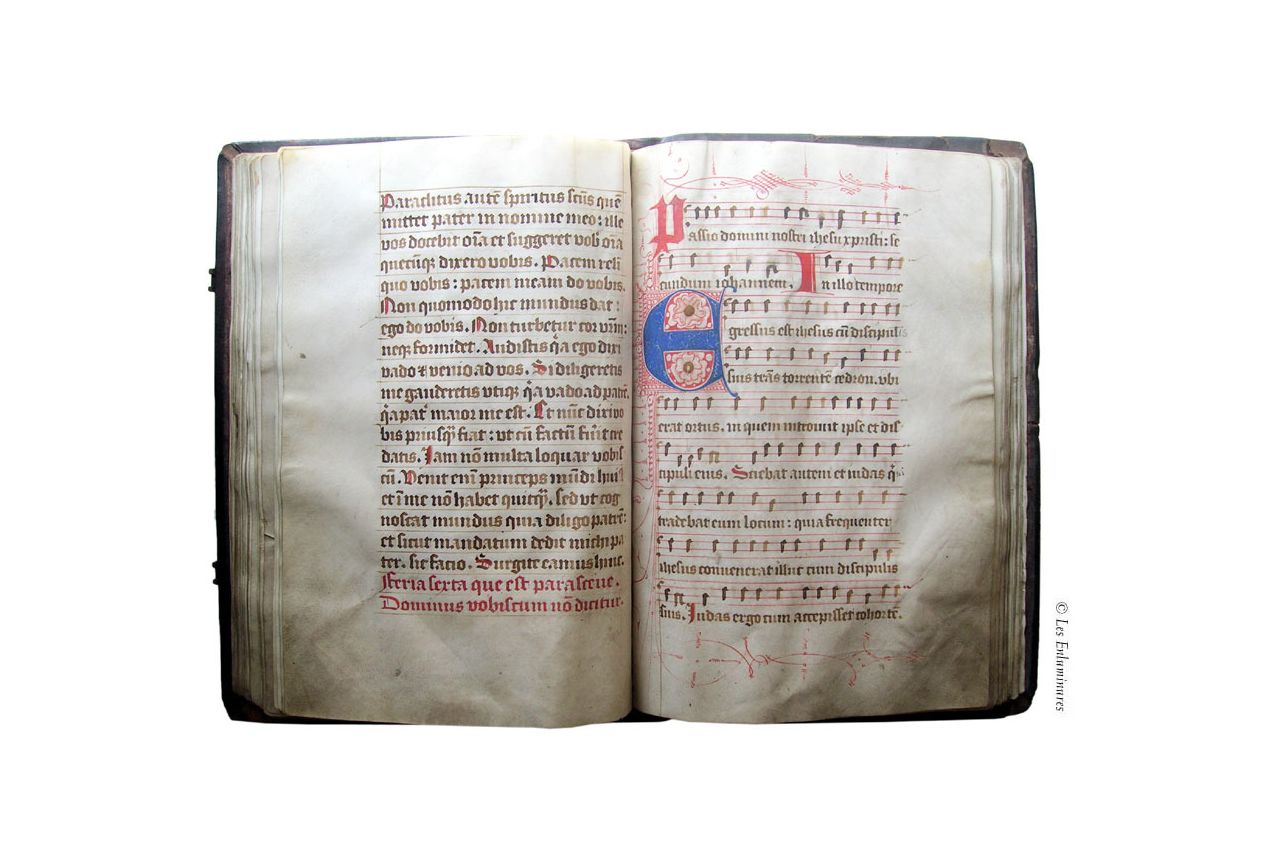 Paraclitus autē spiritus scūs quē
mittet pater in nomine meo: ille
vos docebit oīa et suggeret vob oīa
quecūqꝫ dixero vobis. Pacem reli
quo vobis: pacem meam do vobis.
Non quomodo hic mundus dat:
ego do vobis. Non turbetur cor vrm:
neqꝫ formidet. Audistis qͣ ego dixi
vado ⁊ venio ad vos. Si diligeretis
me gauderetis vtiqꝫ qͣ a vado ad patrē
qͣ a pat maior me est. Et nūc dixi vo
bis priusqꝫ fiat: vt cū factū fūit cre
datis. Iam nō multa loquar vobis
cū. Venit enī princeps mūdi huiꝰ
et ī me nō habet quitqꝫ. sed vt cog
noscat mundus quia diligo patrē:
et sicut mandatum dedit michi pa
ter. sic facio. Surgite eamus hinc.
feria sexta que est parasceue.
Dominus vobiscum nō dicitur.
Passio domini nostri ihesu xpristi: se
cundum iohannem. In illo tempore
Egressus est ihesus cū discipulis
suis trās torrentē cedron. vbi
erat ortus. in quem introiuit ipse et dis
cipuli eius. Sciebat autem et iudas qͥ
tradebat eum locum: quia frequenter
ihesus conuenerat illuc cum discipulis
suis. Iudas ergo cum accepisset cohortē.
© Les Enluminures